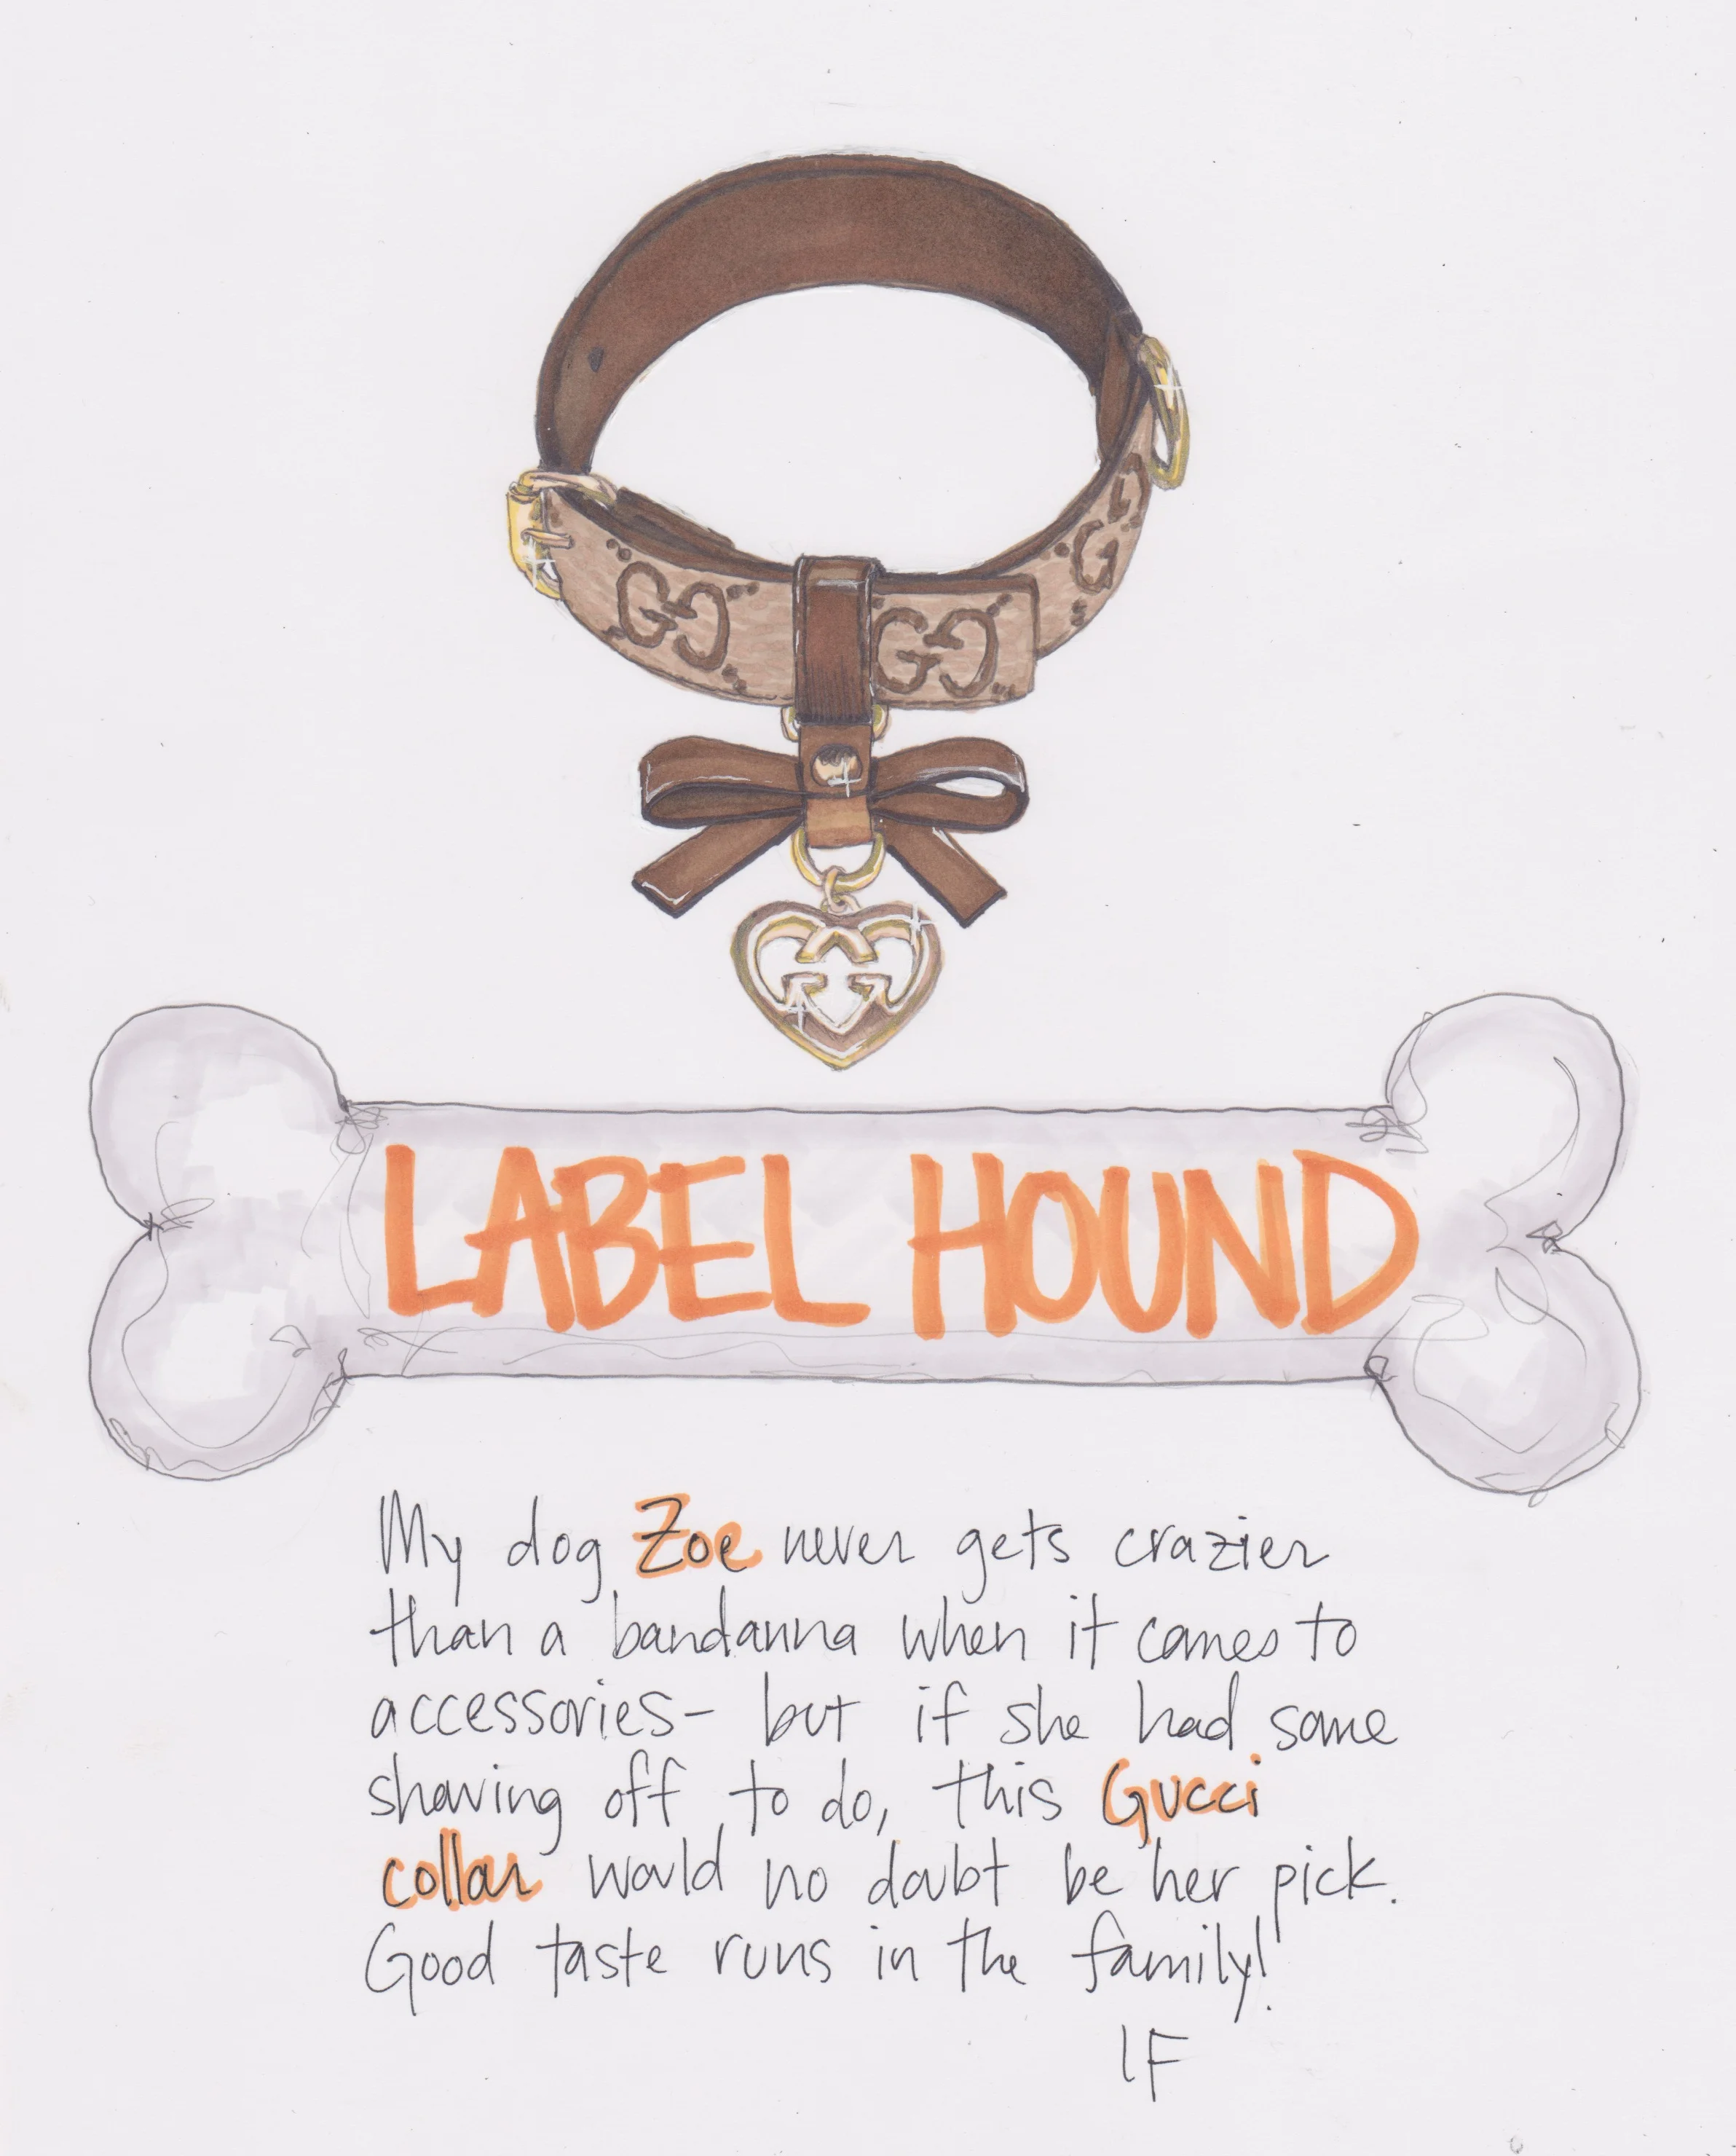 GG GG G G
LABEL HOUND
My dog Zoe never gets crazier
than a bandanna when it comes to
accessories- but if she had some
showing off to do, this Gucci
collar would no doubt be her pick.
Good taste runs in the family!
IF